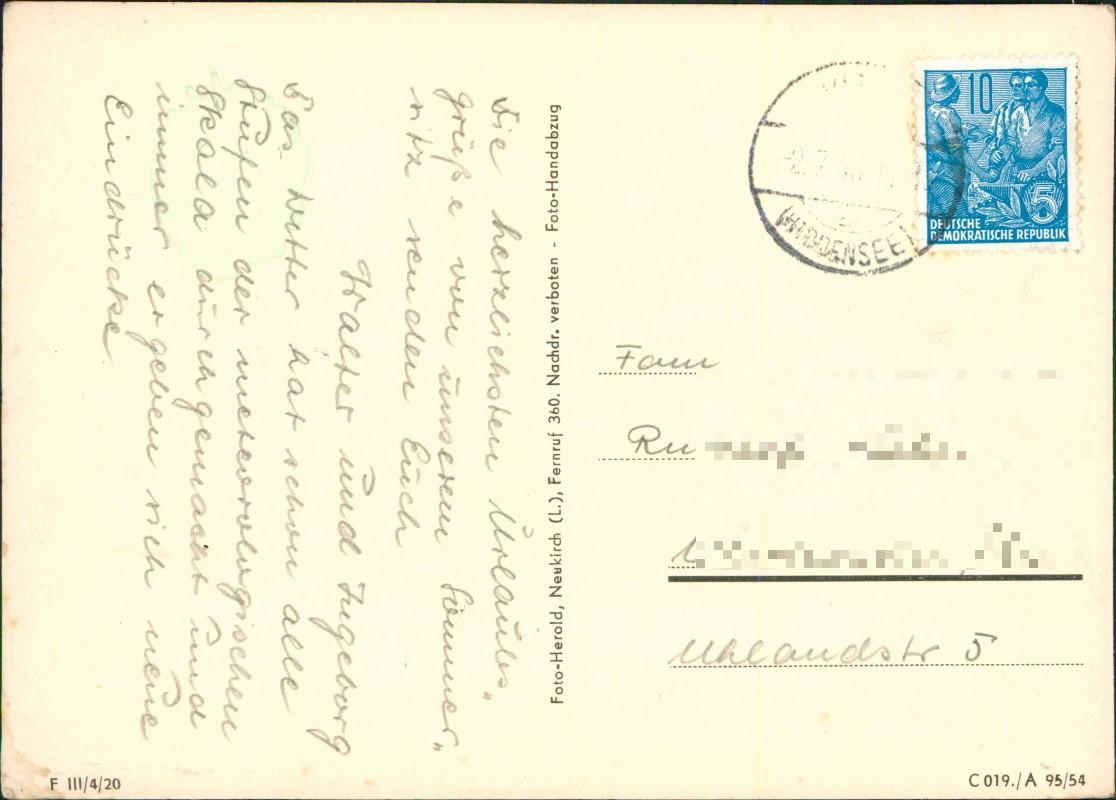 Die herzlichsten Urlaubs„
grüße von unserem Sommer„
sitz senden Euch
Walter und Ingeborg
Das Wetter hat schon alle
Stufen der meteorologischen
Skala durchgemacht und
immer ergeben sich neue
Eindrücke
Foto-Herold, Neukirch (L.), Fernruf 360. Nachdr. verboten - Foto-Handabzug
10
5
DEUTSCHE
DEMOKRATISCHE REPUBLIK
(HIDDENSEE)
Fam
Uhlandstr 5
F III/4/20
C 019./A 95/54